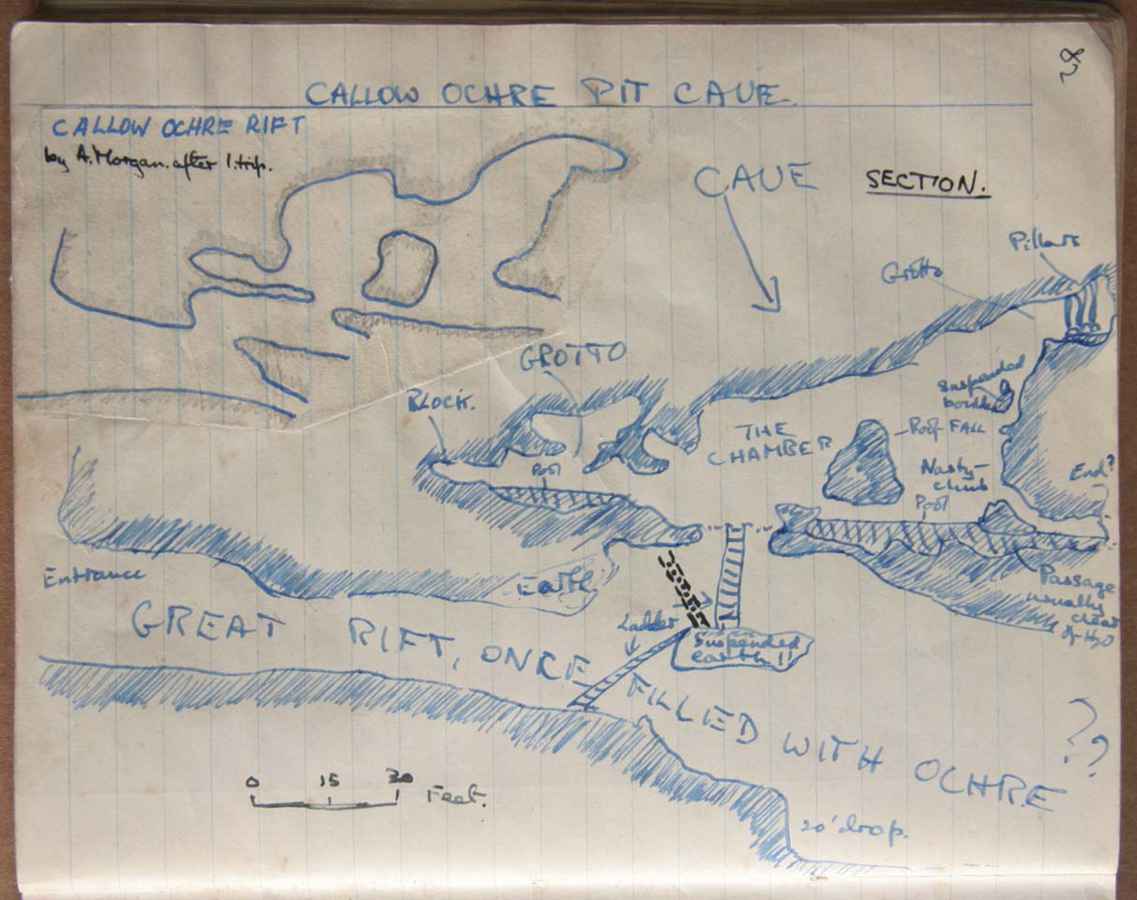 CALLOW OCHRE PIT CAVE.
CALLOW OCHRE RIFT
by A. Morgan. after 1. trip.
CAVE
SECTION.
Pillars
Grotto
GROTTO
BLOCK.
Suspended
boulder
THE
CHAMBER
Roof FALL
Pool
Nasty
climb
Pool
End?
Entrance
Earth
Passage
usually
clear
of H2O
Ladder
Suspended
earth!!
GREAT RIFT, ONCE FILLED WITH OCHRE
??
0 15 30 Feet.
20' drop.